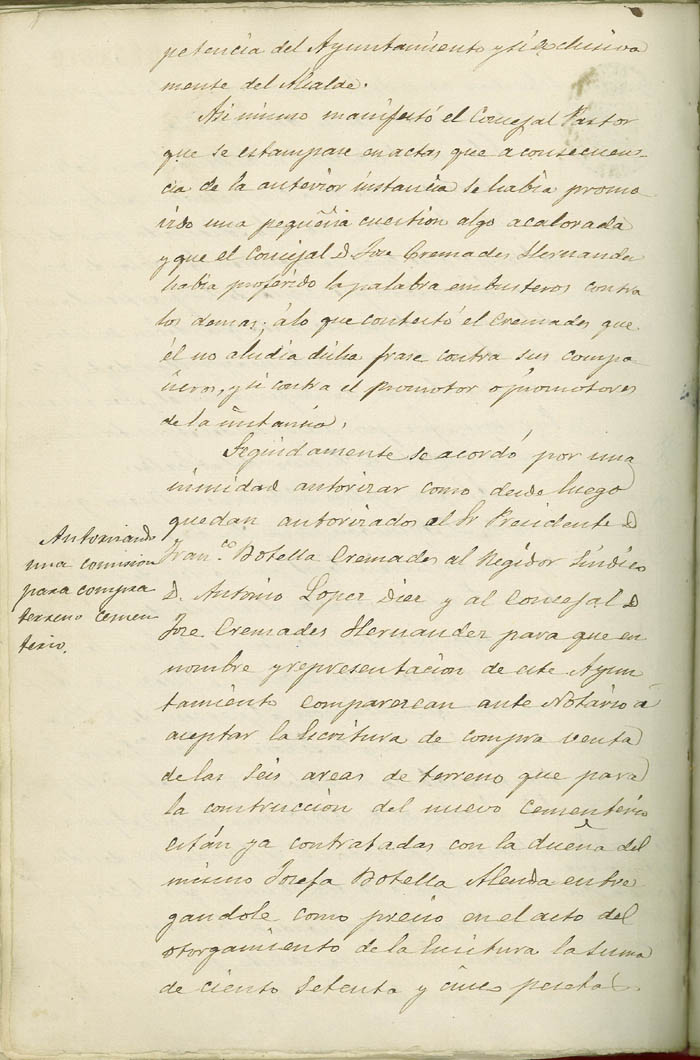 petencia del Ayuntamiento y si exclusiva
mente del Alcalde.
Asi mismo manifestó el Concejal Pastor
que se estampase en actas que a consecuen-
cia de la anterior instancia se habia promo
vido una pequeña cuestion algo acalorada
y que el Concejal D. Jose Cremades Hernandez
habia proferido la palabra embusteros contra
los demas; á lo que contestó el Cremades que
él no aludia dicha frase contra sus compa
ñeros, y si contra el promotor o promotores
de la instancia.
Seguidamente se acordó por una
nimidad autorizar como desde luego
quedan autorizados al Sr Presidente D
Fran.co Botella Cremades al Regidor Sindico
D. Antonio Lopez Diez y al Concejal D
Jose Cremades Hernandez para que en
nombre y representacion de este Ayun
tamiento comparezcan ante Notario á
aceptar la Escritura de compra venta
de las seis areas de terreno que para
la construccion del nuevo cementerio
están ya contratadas con la dueña del
mismo Josefa Botella Alenda entre
gandole como precio en el acto del
otorgamiento de la Escritura la suma
de ciento setenta y cinco pesetas.
Autorizando
una comision
para compra
terreno cemen
terio.